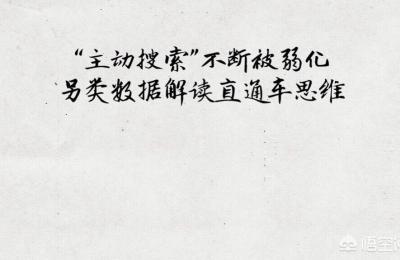 “主动搜索”不断被弱化
另类数据解读直通车思维
悟空问答